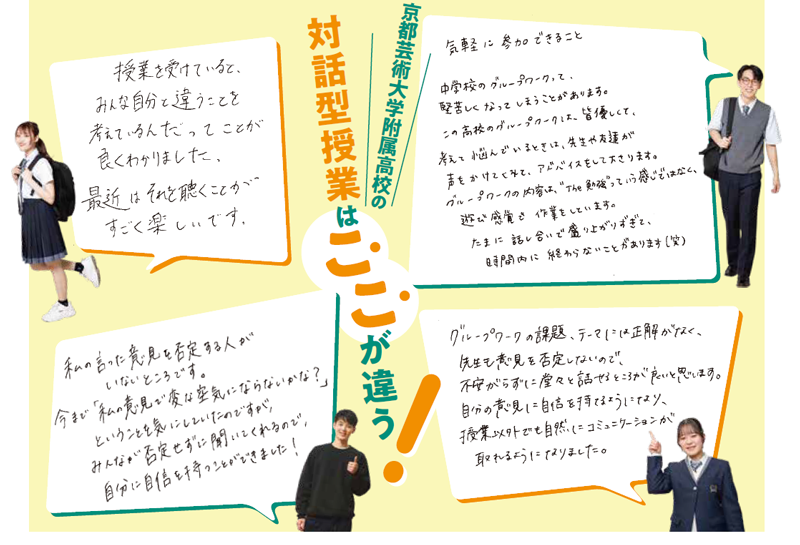 京都芸術大学附属高校の
対話型授業は
ここが違う!
気軽に参加できること
中学校のグループワークって、
堅苦しくなってしまうことがあります。
この高校のグループワークは、皆優しくて、
考えて悩んでいるときは、先生や友達が
声をかけてくれて、アドバイスをして下さります。
グループワークの内容は、"The 勉強"っていう感じではなく、
遊び感覚で作業をしています。
たまに話し合いで盛り上がりすぎて、
時間内に終わらないことがあります(笑)
授業を受けていると、
みんな自分と違うことを
考えているんだってことが
良くわかりました、
最近はそれを聴くことがで
すごく楽しいです。
私の言った意見を否定する人が
いないところです。
今まで「私の意見で変な空気にならないかな?」
ということを気にしていたのですが、
みんなが否定せずに聞いてくれるので、
自分に自信を持つことができました!
グループワークの課題、テーマには正解がなく、
先生も意見を否定しないので、
不安がらずに堂々と話せるところが良いと思います。
自分の意見に自信を持てるようになり、
授業以外でも自然にコミュニケーションが
取れるようになりました。